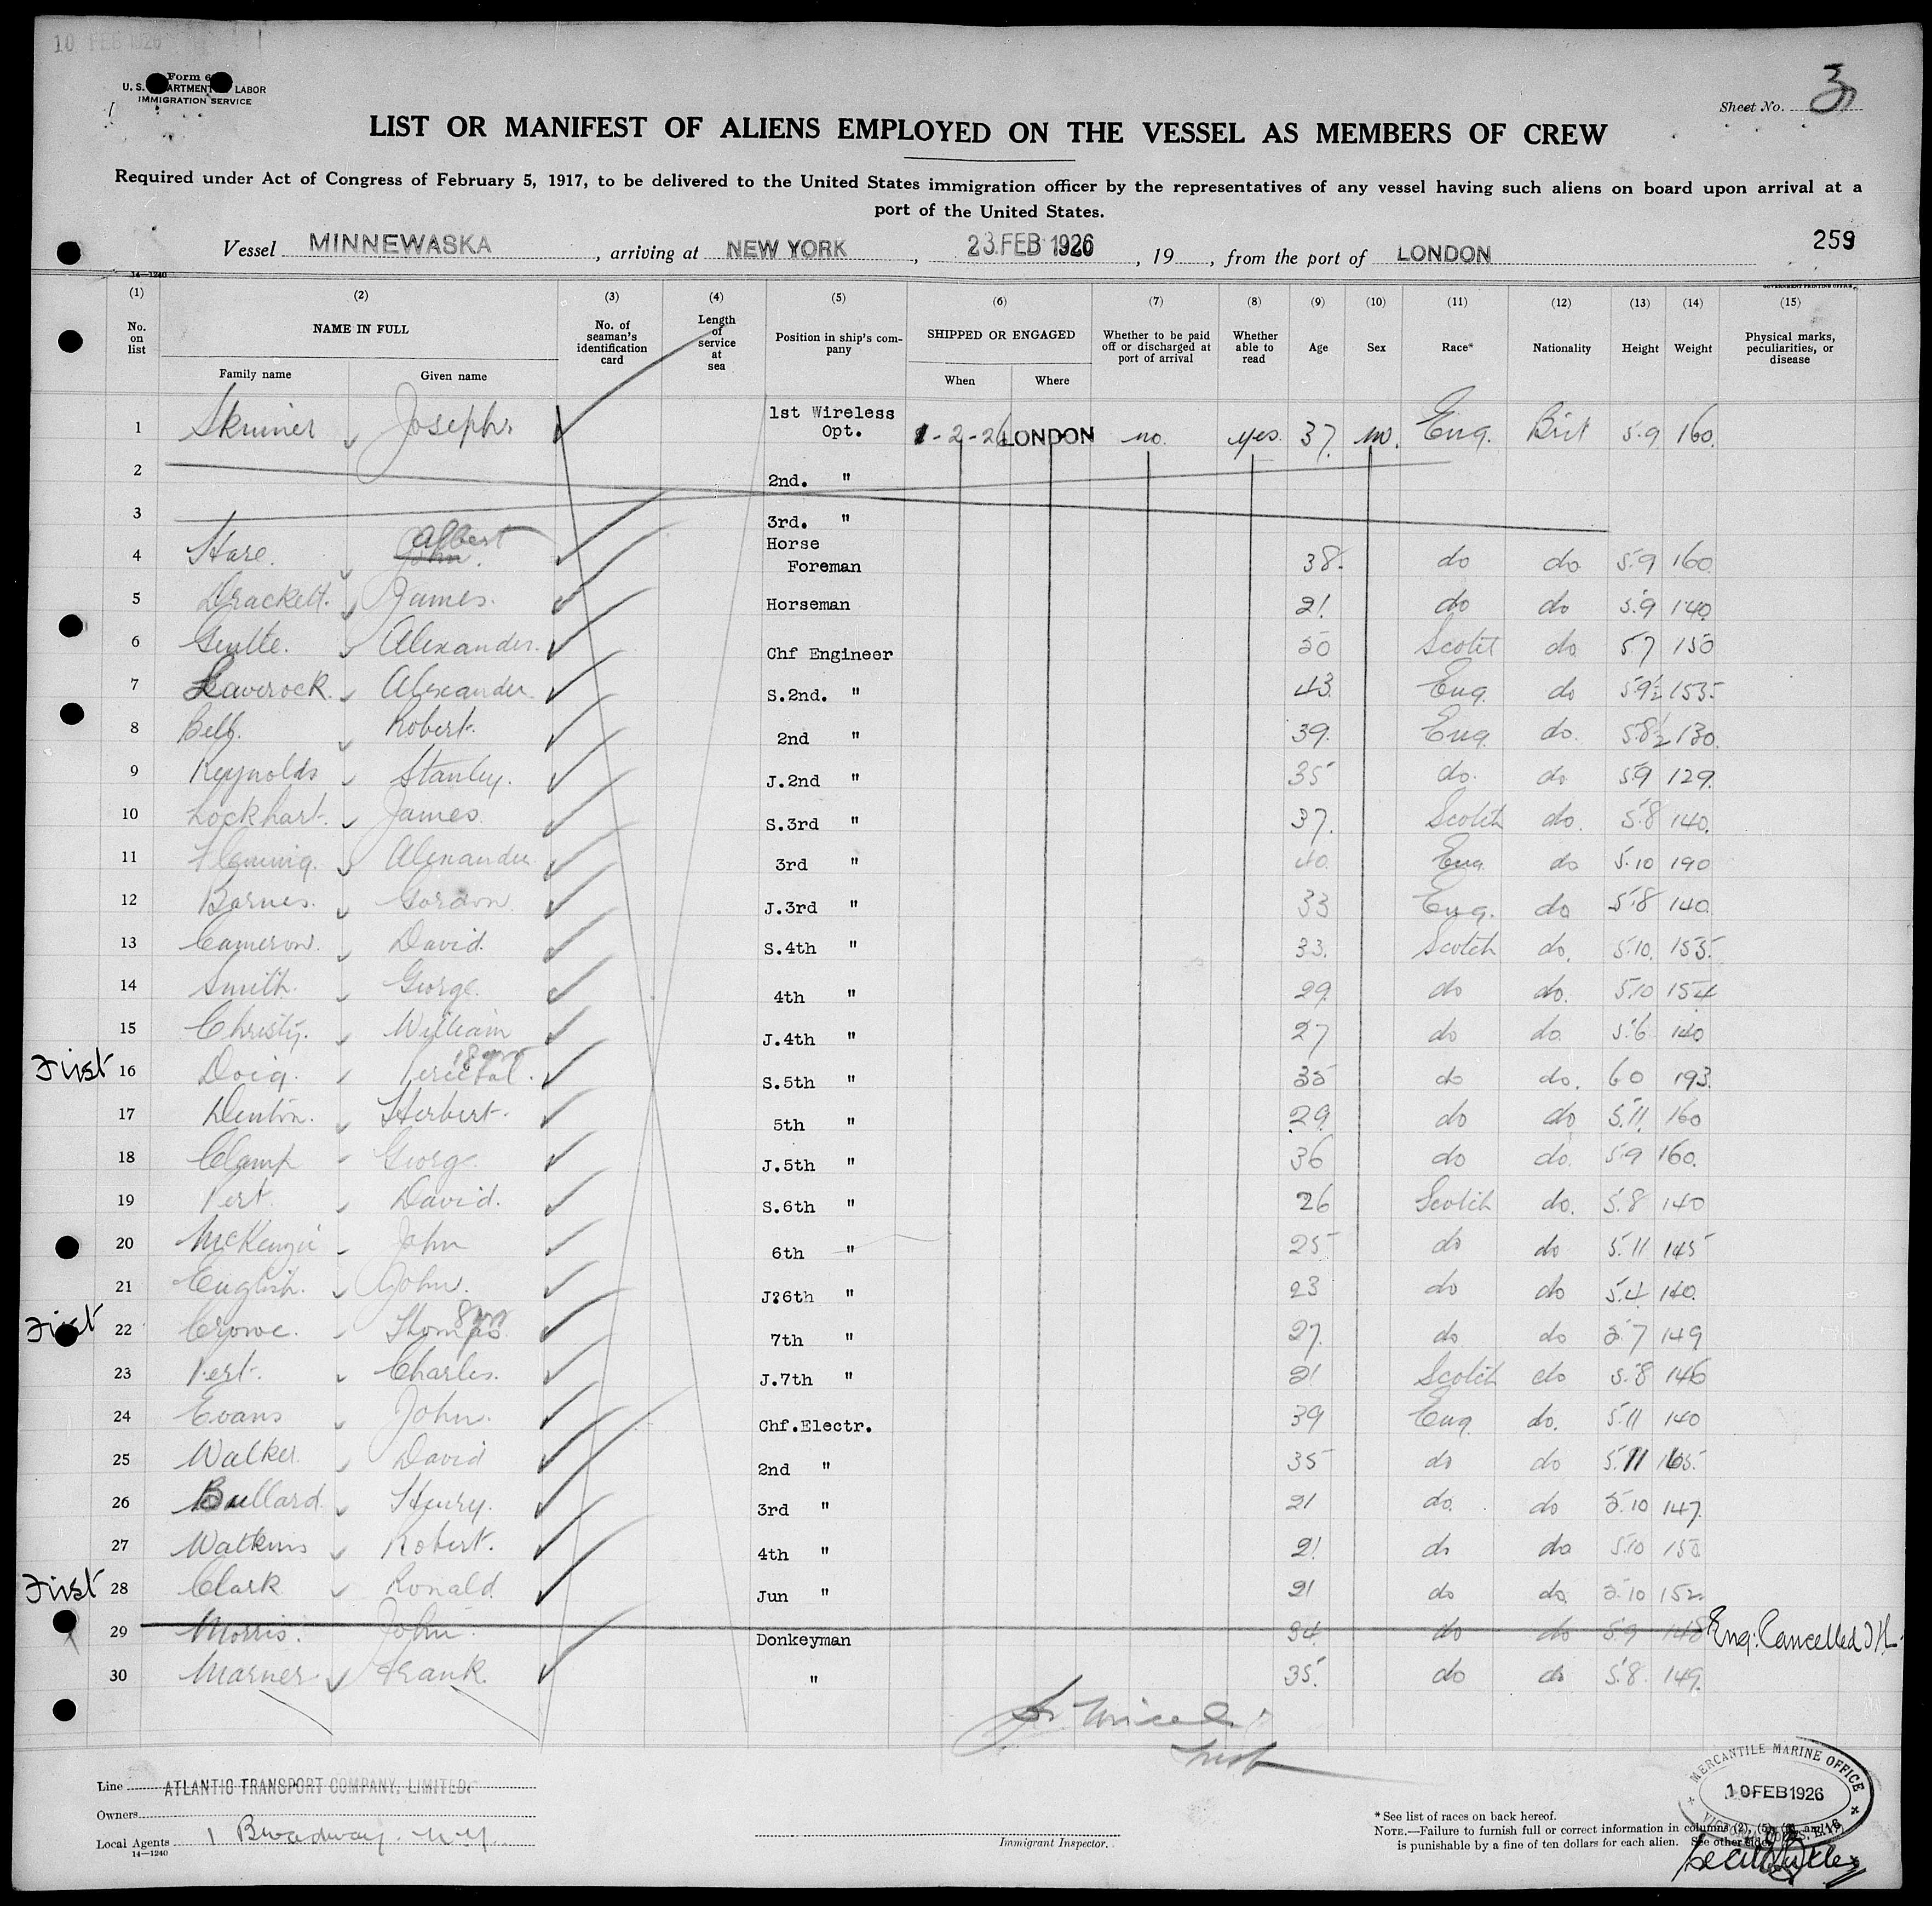 10 FEB 1926
Form 6
U. S. DEPARTMENT LABOR
IMMIGRATION SERVICE
Sheet No. 3
LIST OR MANIFEST OF ALIENS EMPLOYED ON THE VESSEL AS MEMBERS OF CREW
Required under Act of Congress of February 5, 1917, to be delivered to the United States immigration officer by the representatives of any vessel having such aliens on board upon arrival at a
port of the United States.
Vessel MINNEWASKA, arriving at NEW YORK, 23. FEB 1926, 19, from the port of LONDON
259
14—1240
GOVERNMENT PRINTING OFFICE
(1) (2) (3) (4) (5) (6) (7) (8) (9) (10) (11) (12) (13) (14) (15)
No. on list NAME IN FULL Family name Given name No. of seaman's identification card Length of service at sea Position in ship's company SHIPPED OR ENGAGED When Where Whether to be paid off or discharged at port of arrival Whether able to read Age Sex Race* Nationality Height Weight Physical marks, peculiarities, or disease
1 Skinner Joseph 1st Wireless Opt. 1-2-26 LONDON no. yes. 37. m. Eng. Brit 5.9 160.
2 2nd. "
3 3rd. "
4 Hare. John. Albert Horse Foreman 38. do do 5.9 160
5 Brackett. James. Horseman 21 do do 5.9 140
6 Alexander. Chf Engineer 50 Scotch do 5 7 150
7 Leaverock. Alexander S.2nd. " 43 Eng. do 5.9½ 153
8 Bell. Robert. 2nd " 39. Eng. do. 5.8½ 130.
9 Reynolds Stanley. J.2nd " 35 do. do 5.9 129.
10 Lockhart. James. S.3rd " 37. Scotch do. 5.8 140.
11 Fleming. Alexander 3rd " 40. Eng do 5.10 190
12 Barnes. Gordon J.3rd " 33 Eng. do 5.8 140.
13 Cameron. David. S.4th " 33. Scotch do. 5.10. 155.
14 Smith. George. 4th " 29 do do. 5.10 154
15 Christy. William J.4th " 27 do do. 5.6 140
First 16 Doig. Percival. 18 yrs S.5th " 35 do do. 6 0 193.
17 Denton. Herbert. 5th " 29. do do 5.11. 160
18 Clamp George. J.5th " 36 do do. 5.9 160.
19 Pert. David. S.6th " 26 Scotch do. 5.8 140
20 McKenzie John 6th " 25 do do 5.11 145
21 English. John. J?6th " 23 do do 5.4 140.
First 22 Crowe. Thomas. 7th " 27. do do 5.7 149
23 Pert. Charles. J.7th " 21 Scotch do 5.8 146
24 Evans John. Chf.Electr. 39 Eng do. 5.11 140
25 Walker. David 2nd " 35 do do 5.11 165.
26 Bullard. Henry. 3rd " 21 do. do 5.10 147.
27 Watkins Robert. 4th " 21 do do 5.10 150
First 28 Clark Ronald Jun " 21 do do. 5.10 152
29 Morris. John Donkeyman 34 do do 5.9 148 Eng: Cancelled
30 Marner Frank. " 35. do do 5.8. 149.
Line ATLANTIC TRANSPORT COMPANY, LIMITED.
Owners
Local Agents 1 Broadway. N.Y.
14—1240
Immigrant Inspector.
*See list of races on back hereof.
NOTE.—Failure to furnish full or correct information in columns (2), (5),
is punishable by a fine of ten dollars for each alien. See other side.
MERCANTILE MARINE OFFICE
10 FEB 1926